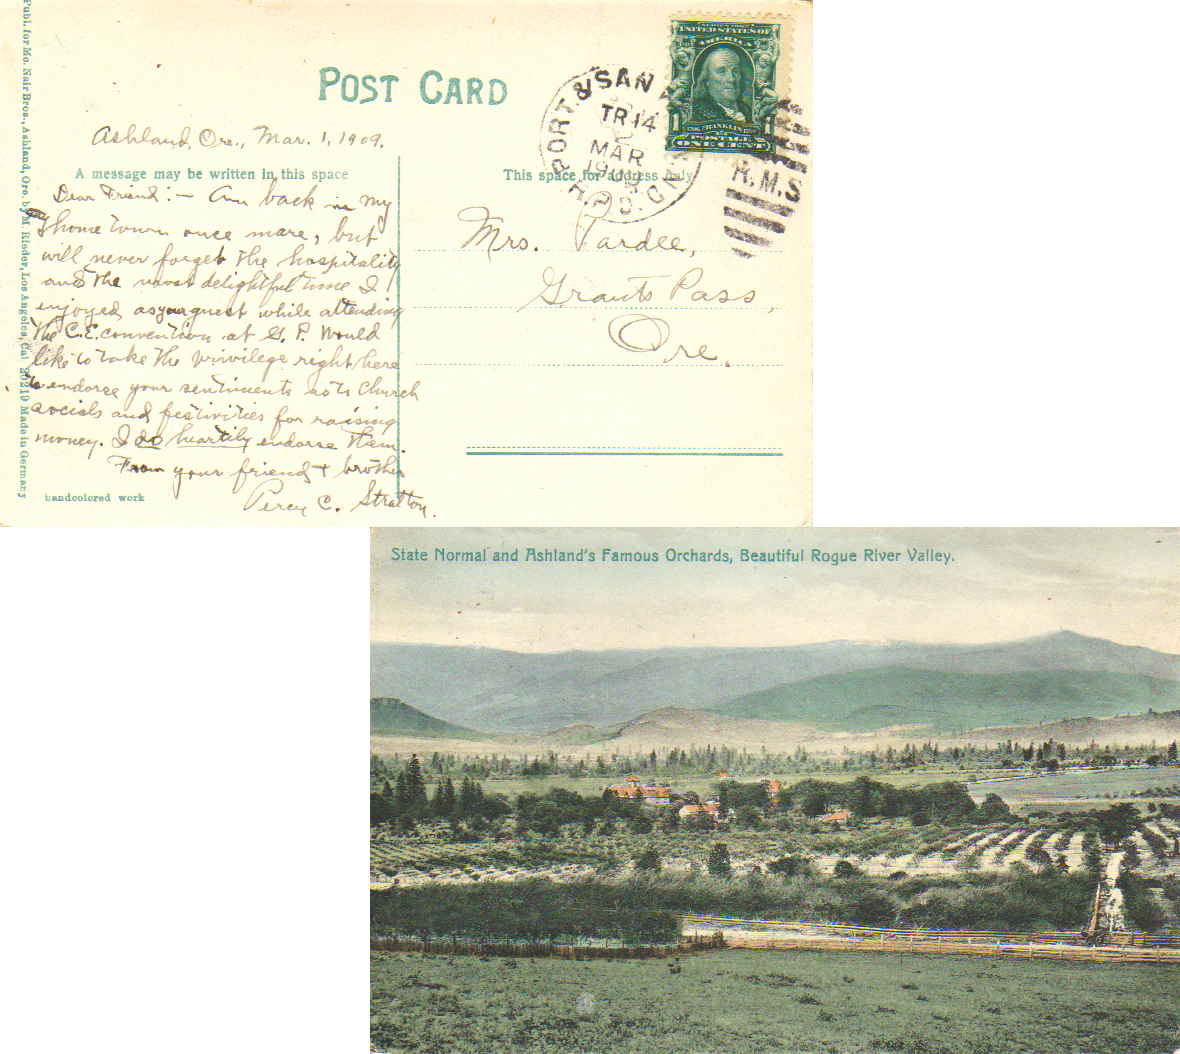 Publ. for Mc. Nair Bros., Ashland, Ore. by M. Rieder, Los Angeles, Cal 20219 Made in Germany
POST CARD
UNITED STATES OF
AMERICA
FRANKLIN
1 1
POSTAGE
ONE CENT
PORT. & SAN
TR 14
MAR
1909
R.P.O.
R.M.S
Ashland, Ore., Mar. 1, 1909.
A message may be written in this space
This space for address only
Dear Friend:— Am back in my
home town once more, but
will never forget the hospitality
and the most delightful time I
enjoyed as your guest while attending
the C.E. convention at G. P. Would
like to take the privilege right here
to endorse your sentiments as to Church
socials and festivities for raising
money. I do heartily endorse them.
From your friend & brother
Percy C. Stratton.
Mrs. Pardee,
Grants Pass,
Ore.
handcolored work
State Normal and Ashland's Famous Orchards, Beautiful Rogue River Valley.